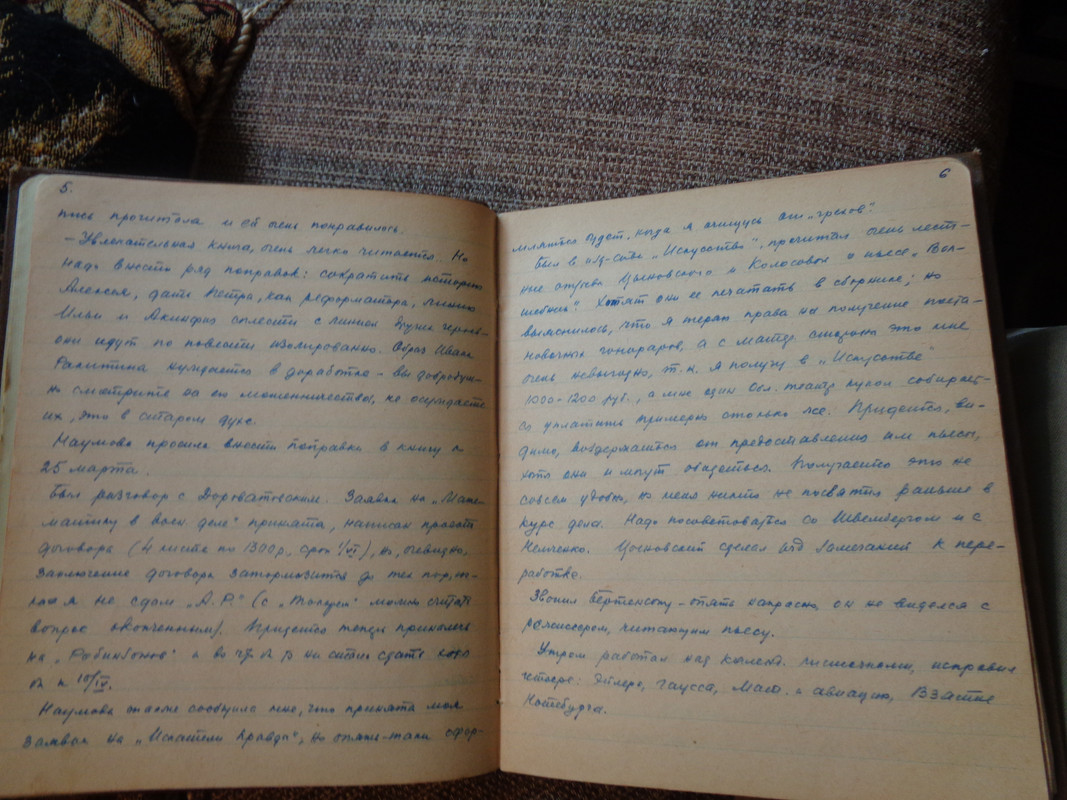 5.
пись прочитала и ей очень понравилось.
– Увлекательная книга, очень легко читается. Но
надо внести ряд поправок: сократить историю
Алексея, дать Петра, как реформатора, линию
Ильи и Акинфия сплести с линией других героев –
они идут по повести изолированно. Образ Ивана
Ракитина нуждается в доработке – вы добродуш-
но смотрите на его мошенничество, не осуждаете
их, это в старом духе.
Наумова просила внести поправки в книгу к
25 марта.
Был разговор с . Заявка на „Мате-
матику в воен деле" принята, написан проект
договора (4 листа по 1300 р., срок 1/VI), но, очевидно,
заключение договора затормозится до тех пор, по-
ка я не сдам „А. Р." (с можно считать
вопрос оконченным). Придется теперь приналечь
на и во что бы то ни стало сдать
к 10/IV.
Наумова также сообщила мне, что принята моя
заявка на „Искатели правды", но опять-таки офор-
6
мляться будет, когда я очищусь от „грехов".
Был в изд-стве „Искусство", прочитал очень лест-
ные отзывы и Колосова о пьесе „Вол-
шебная". Хотят они ее печатать в сборнике; но
выяснилось, что я теряю права на получение поста-
новочных гонораров, а с матер. стороны это мне
очень невыгодно, т. к. я получу в „Искусстве"
1000–1200 руб., а мне один обл. театр кукол собирает-
ся уплатить примерно столько же. Придется, ви-
димо, воздержаться от предоставления им пьесы,
хотя они и могут обидеться. Получается это не
совсем удобно, но меня никто не посвятил раньше в
курс дела. Надо посоветоваться со Швембергом и с
Немченко. сделал ряд замечаний к пере-
работке.
Звонил Бертенсону – опять напрасно, он не виделся с
режиссером, читающим пьесу.
Утром работал над календ. листочками, исправил
четыре: Эйлера, Гаусса, Мат. и авиацию,